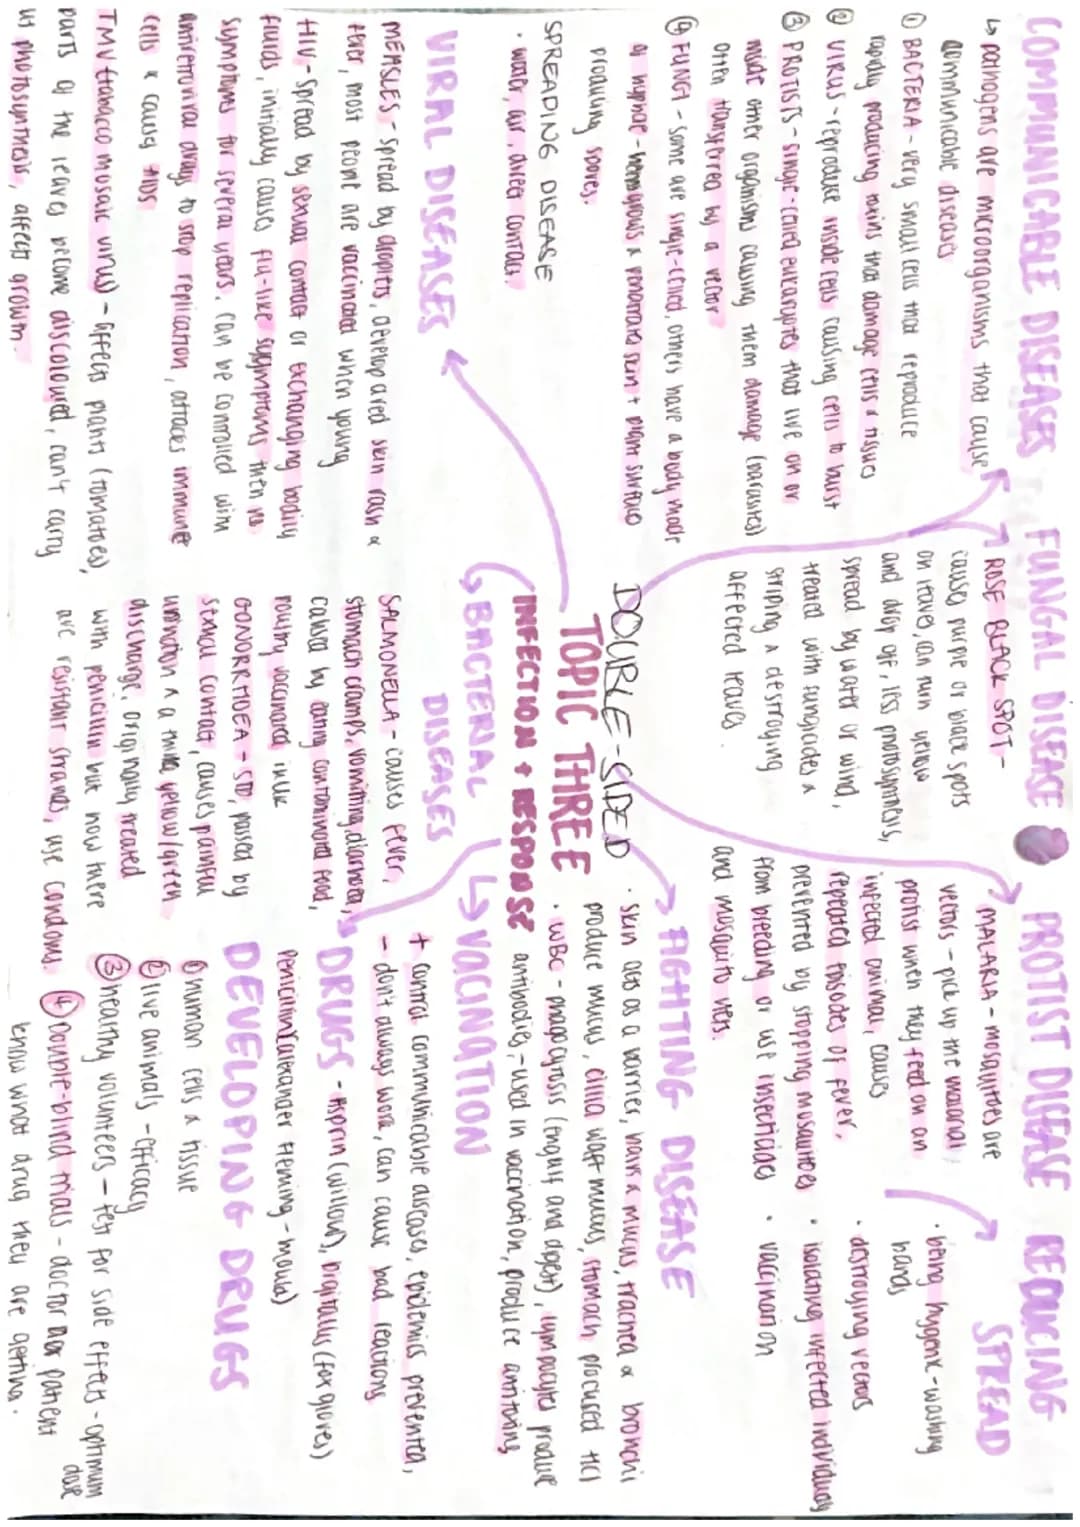 COMMUNICABLE DISEASES
↳ pathogens are microorganisms that cause
communicable diseases
① BACTERIA - very small cells that reproduce
rapidly producing toxins that damage cells & tissues
② VIRUS - reproduce inside cells causing cells to burst
③ PROTISTS - single-celled eukaryotes that live on or
inside other organisms causing them damage (parasites)
often transferred by a vector
④ FUNGI - some are single-celled, others have a body made
of hyphae - grows & penetrate skin + plant surface
producing spores.
SPREADING DISEASE
· water, air, direct contact.
VIRAL DISEASES
MEASLES - spread by droplets, develop a red skin rash &
fever, most people are vaccinated when young
HIV - spread by sexual contact or exchanging bodily
fluids, initially causes flu-like symptoms then no
symptoms for several years. can be controlled with
antiretroviral drugs to stop replication, attacks immune
cells & cause AIDS
TMV (tobacco mosaic virus) - affects plants (tomatoes),
parts of the leaves become discoloured, can't carry
out photosynthesis, affects growth.
FUNGAL DISEASE
ROSE BLACK SPOT -
causes purple or black spots
on leaves, can turn yellow
and drop off, less photosynthesis,
spread by water or wind,
treated with fungicides &
striping & destroying
affected leaves.
DOUBLE-SIDED
TOPIC THREE
INFECTION + RESPONSE
BACTERIAL
DISEASES
SALMONELLA - causes fever,
stomach cramps, vomitting, diarrhoea,
caused by eating contaminated food,
poultry vaccinated in UK
GONORRHOEA - STD, passed by
sexual contact, causes painful
urination & a thick yellow/green
discharge, originally treated
with penicillin but now there
are resistant strands, use condoms.
PROTIST DISEASE
MALARIA - mosquitoes are
vectors - pick up the malarial
protist when they feed on an
infected animal, causes
repeated episodes of fever,
prevented by stopping mosquitoes
from breeding or use insecticides
and mosquito nets.
REDUCING
SPREAD
· being hygenic - washing
hands
· destroying vectors
· isolating infected individuals
· vaccination
FIGHTING DISEASE
· skin acts as a barrier, hairs & mucus, trachea & bronchi
produce mucus, cilia waft mucus, stomach procused HCl
· WBC - phagocytosis (engulf and digest), lympocytes produce
antibodies - used in vaccination, produce antitoxins
↳ VACINATION
+ control communicable diseases, epidemics prevented,
- don't always work, can cause bad reactions
DRUGS - Asprin (willow), Digitallis (foxgloves)
Penicillin (Alexander Fleming - mould)
DEVELOPING DRUGS
① human cells & tissue
② live animals - efficacy
③ healthy volunteers - test for side effects - optimum
dose
④ Double-blind trials - doctor nor patient
know what drug they are getting.